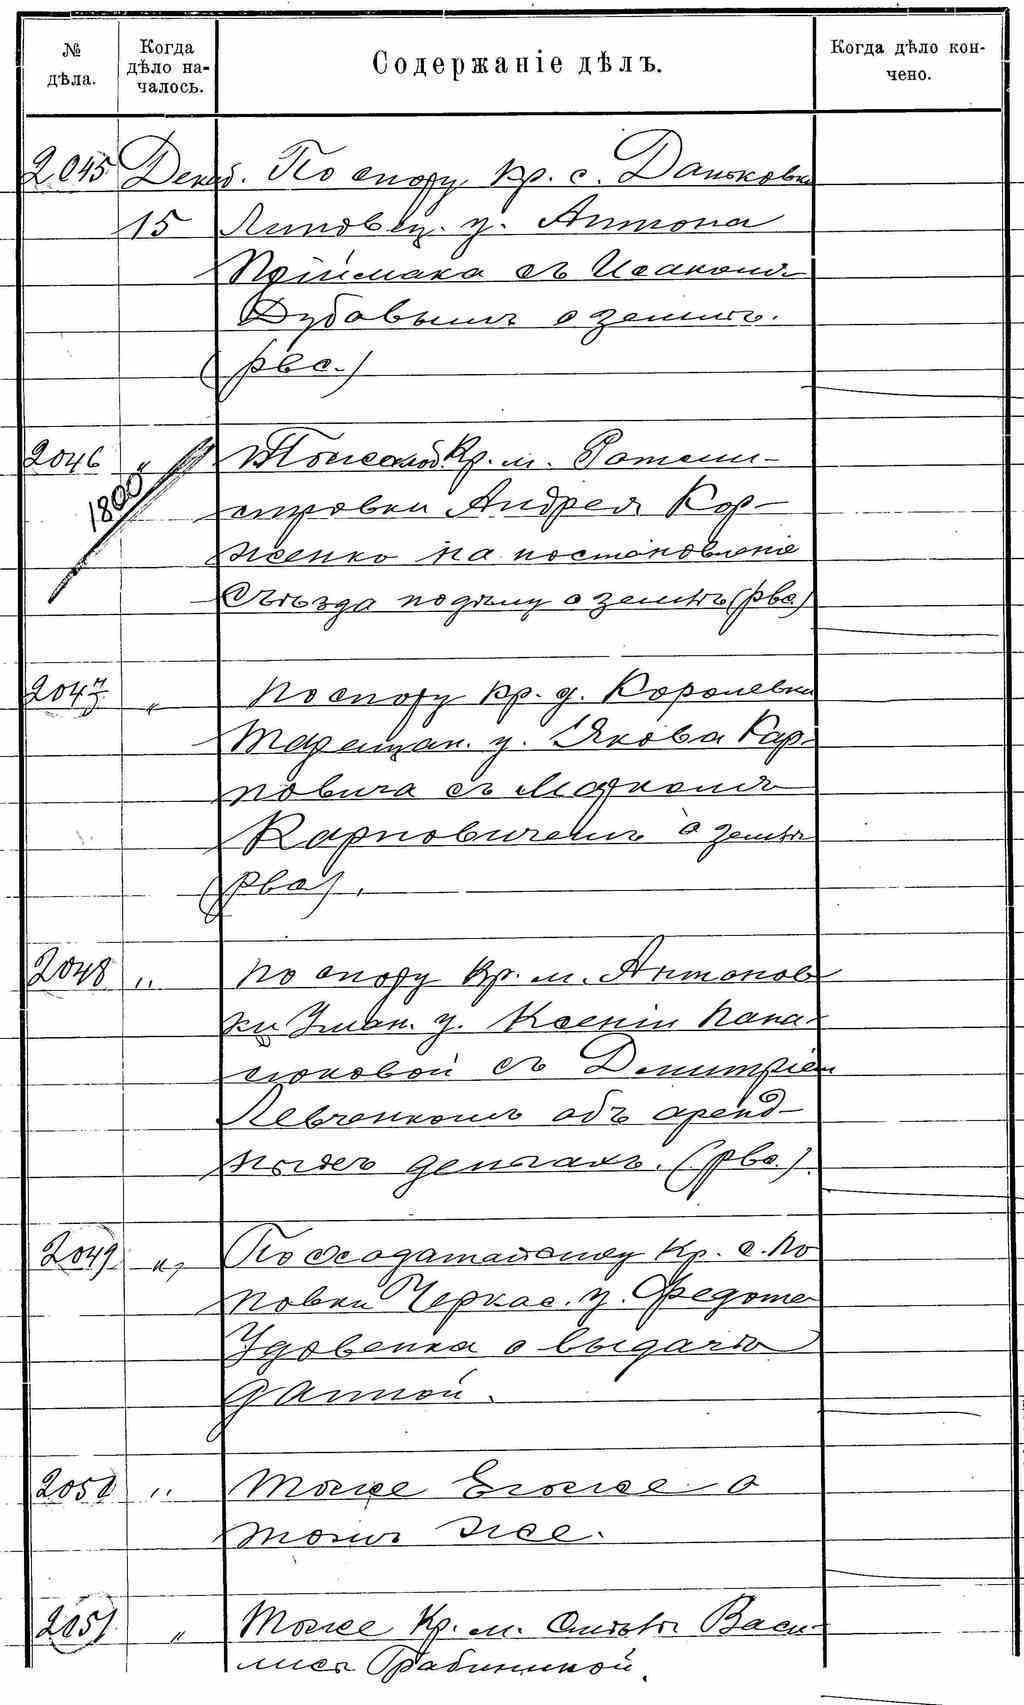 № дѣла.
Когда дѣло на-
чалось.
Содержаніе дѣлъ.
Когда дѣло кон-
чено.
2045 Декаб. По спору кр. с. Даньковки
15 Липовец. у. Антона
Пріймака съ Исакомъ
Дубовымъ о землѣ.
(рвс.)
2046 " По жалоб. Кр. м. Ротми-
1800
стровки Андрея Кор-
женко на постановленіе
Съѣзда по дѣлу о землѣ (рвс.)
2047 " по спору кр. д. Королевки
Таращан. у. Якова Кар-
повича съ Маркомъ
Карповичемъ о землѣ
(рвс).
2048 " по спору кр. м. Антонов-
ки Уман. у. Ксеніи Пана-
сюковой съ Дмитріем
Левченкомъ объ аренд-
ныхъ деньгахъ. (рвс.).
2049 " По ходатайству Кр. с. По
повки Черкас. у. Федота
Удовенка о выдачѣ
данной.
2050 " тоже Егоже о
томъ же.
2051 " тоже Кр. м. Смѣлы Васи-
лисы Грабининой.